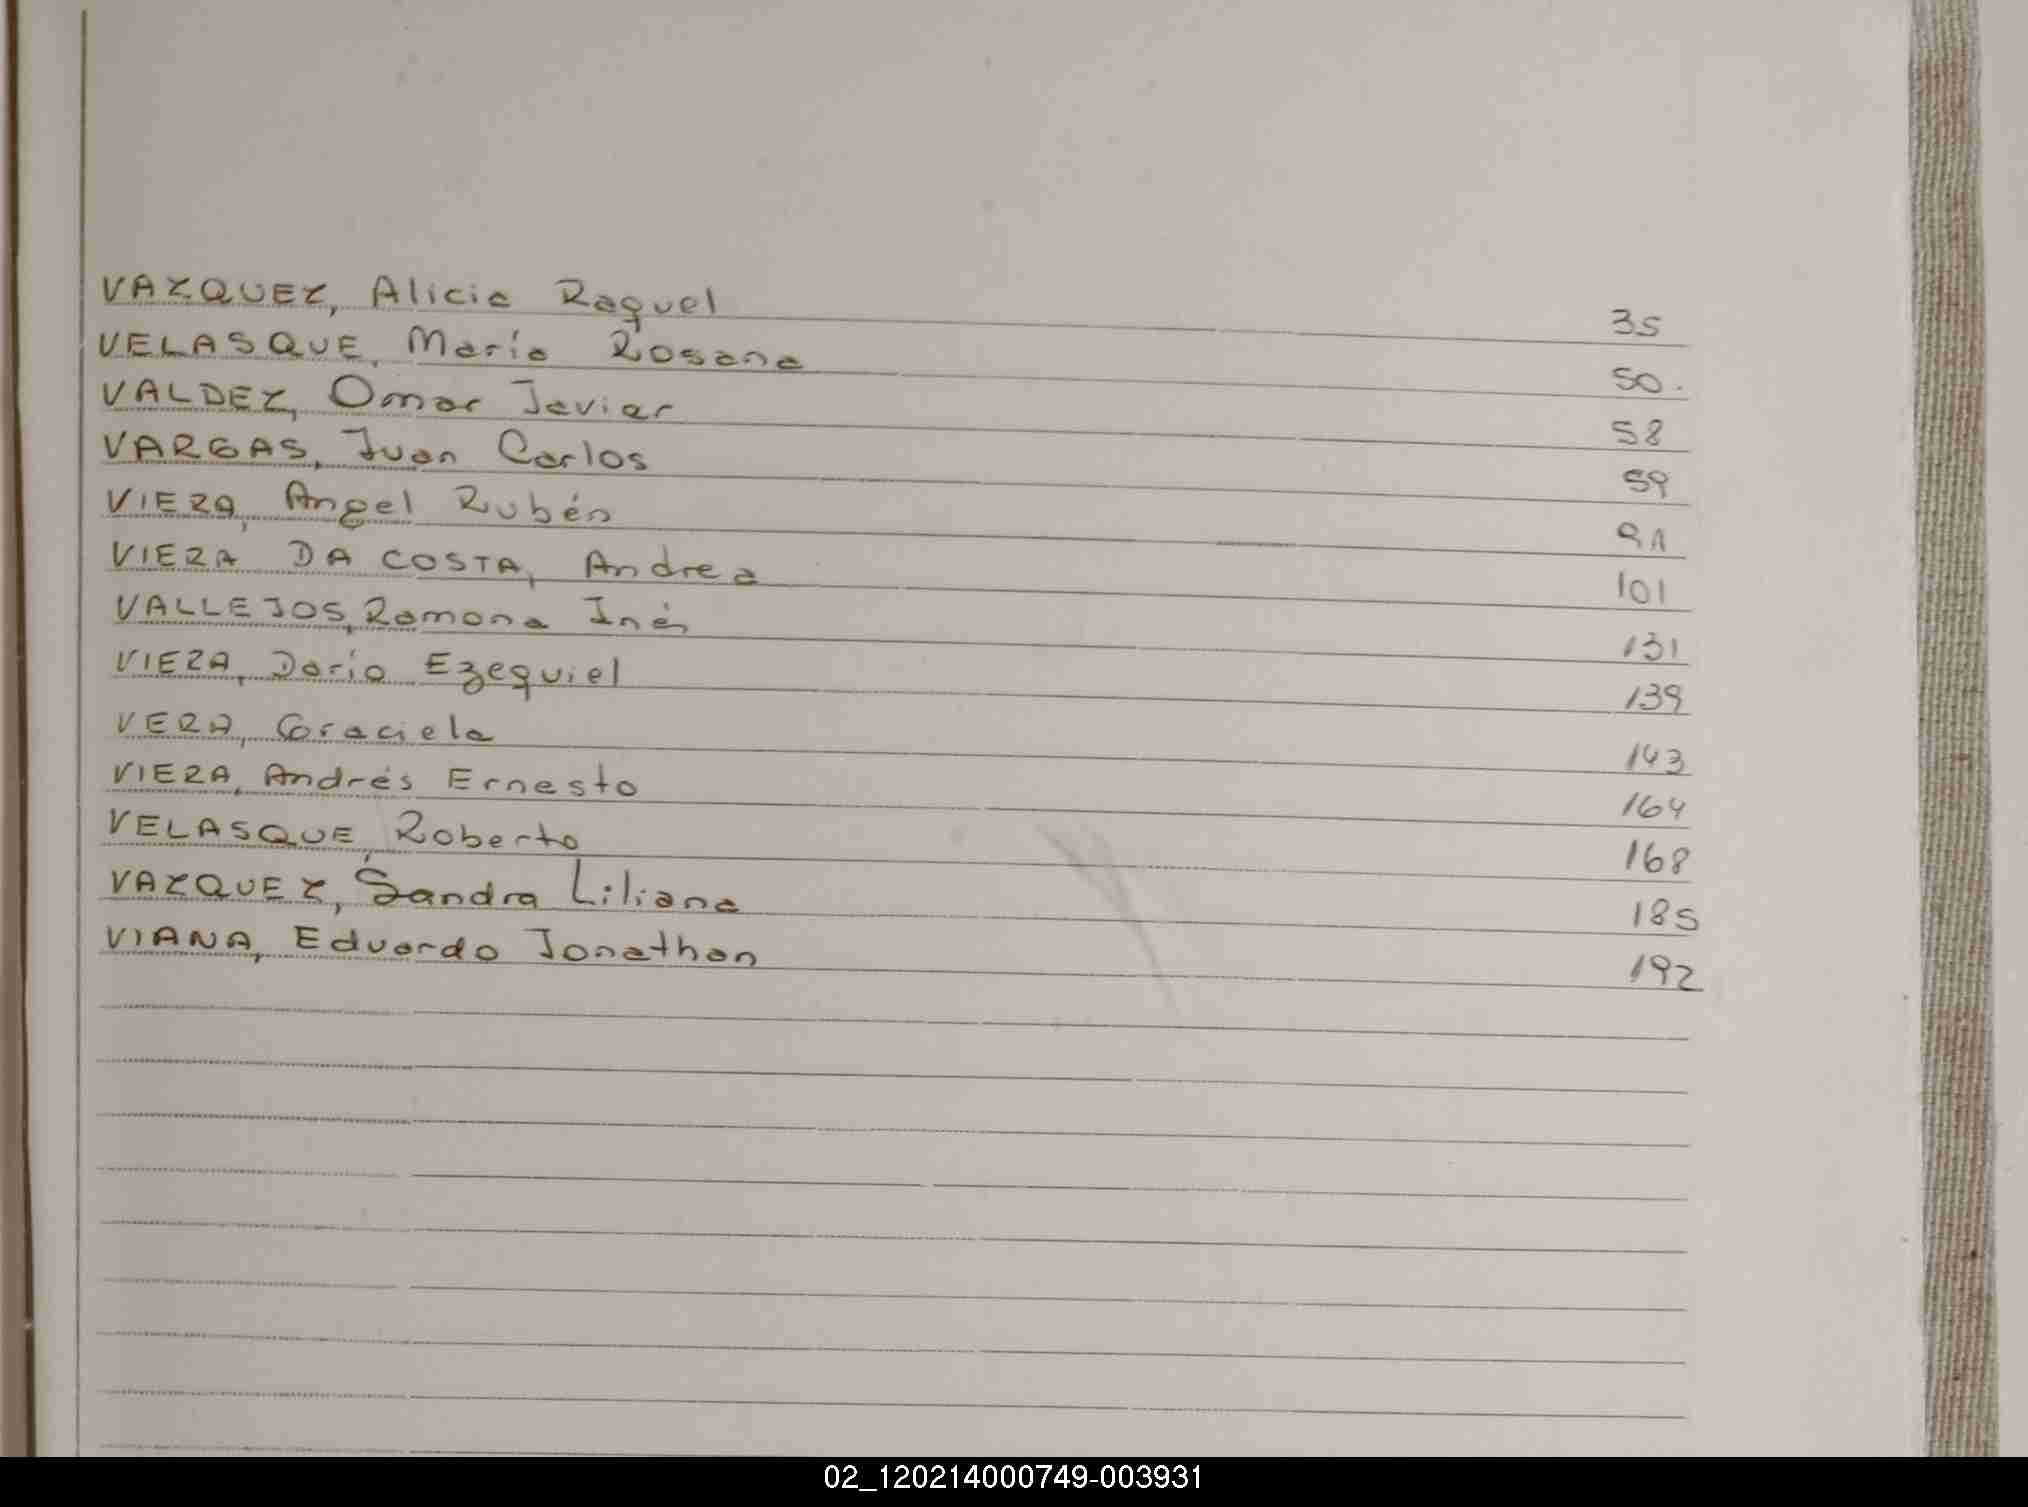 VAZQUEZ, Alicia Raquel 35
VELASQUE, María Rosana 50.
VALDEZ, Omar Javier 58
VARGAS, Juan Carlos 59
VIERA, Angel Rubén 91
VIERA DA COSTA, Andrea 101
VALLEJOS, Ramona Inés 131
VIERA, Darío Ezequiel 139
VERA, Graciela 143
VIERA, Andrés Ernesto 164
VELASQUE, Roberto 168
VAZQUEZ, Sandra Liliana 185
VIANA, Eduardo Jonathan 192
02_120214000749-003931